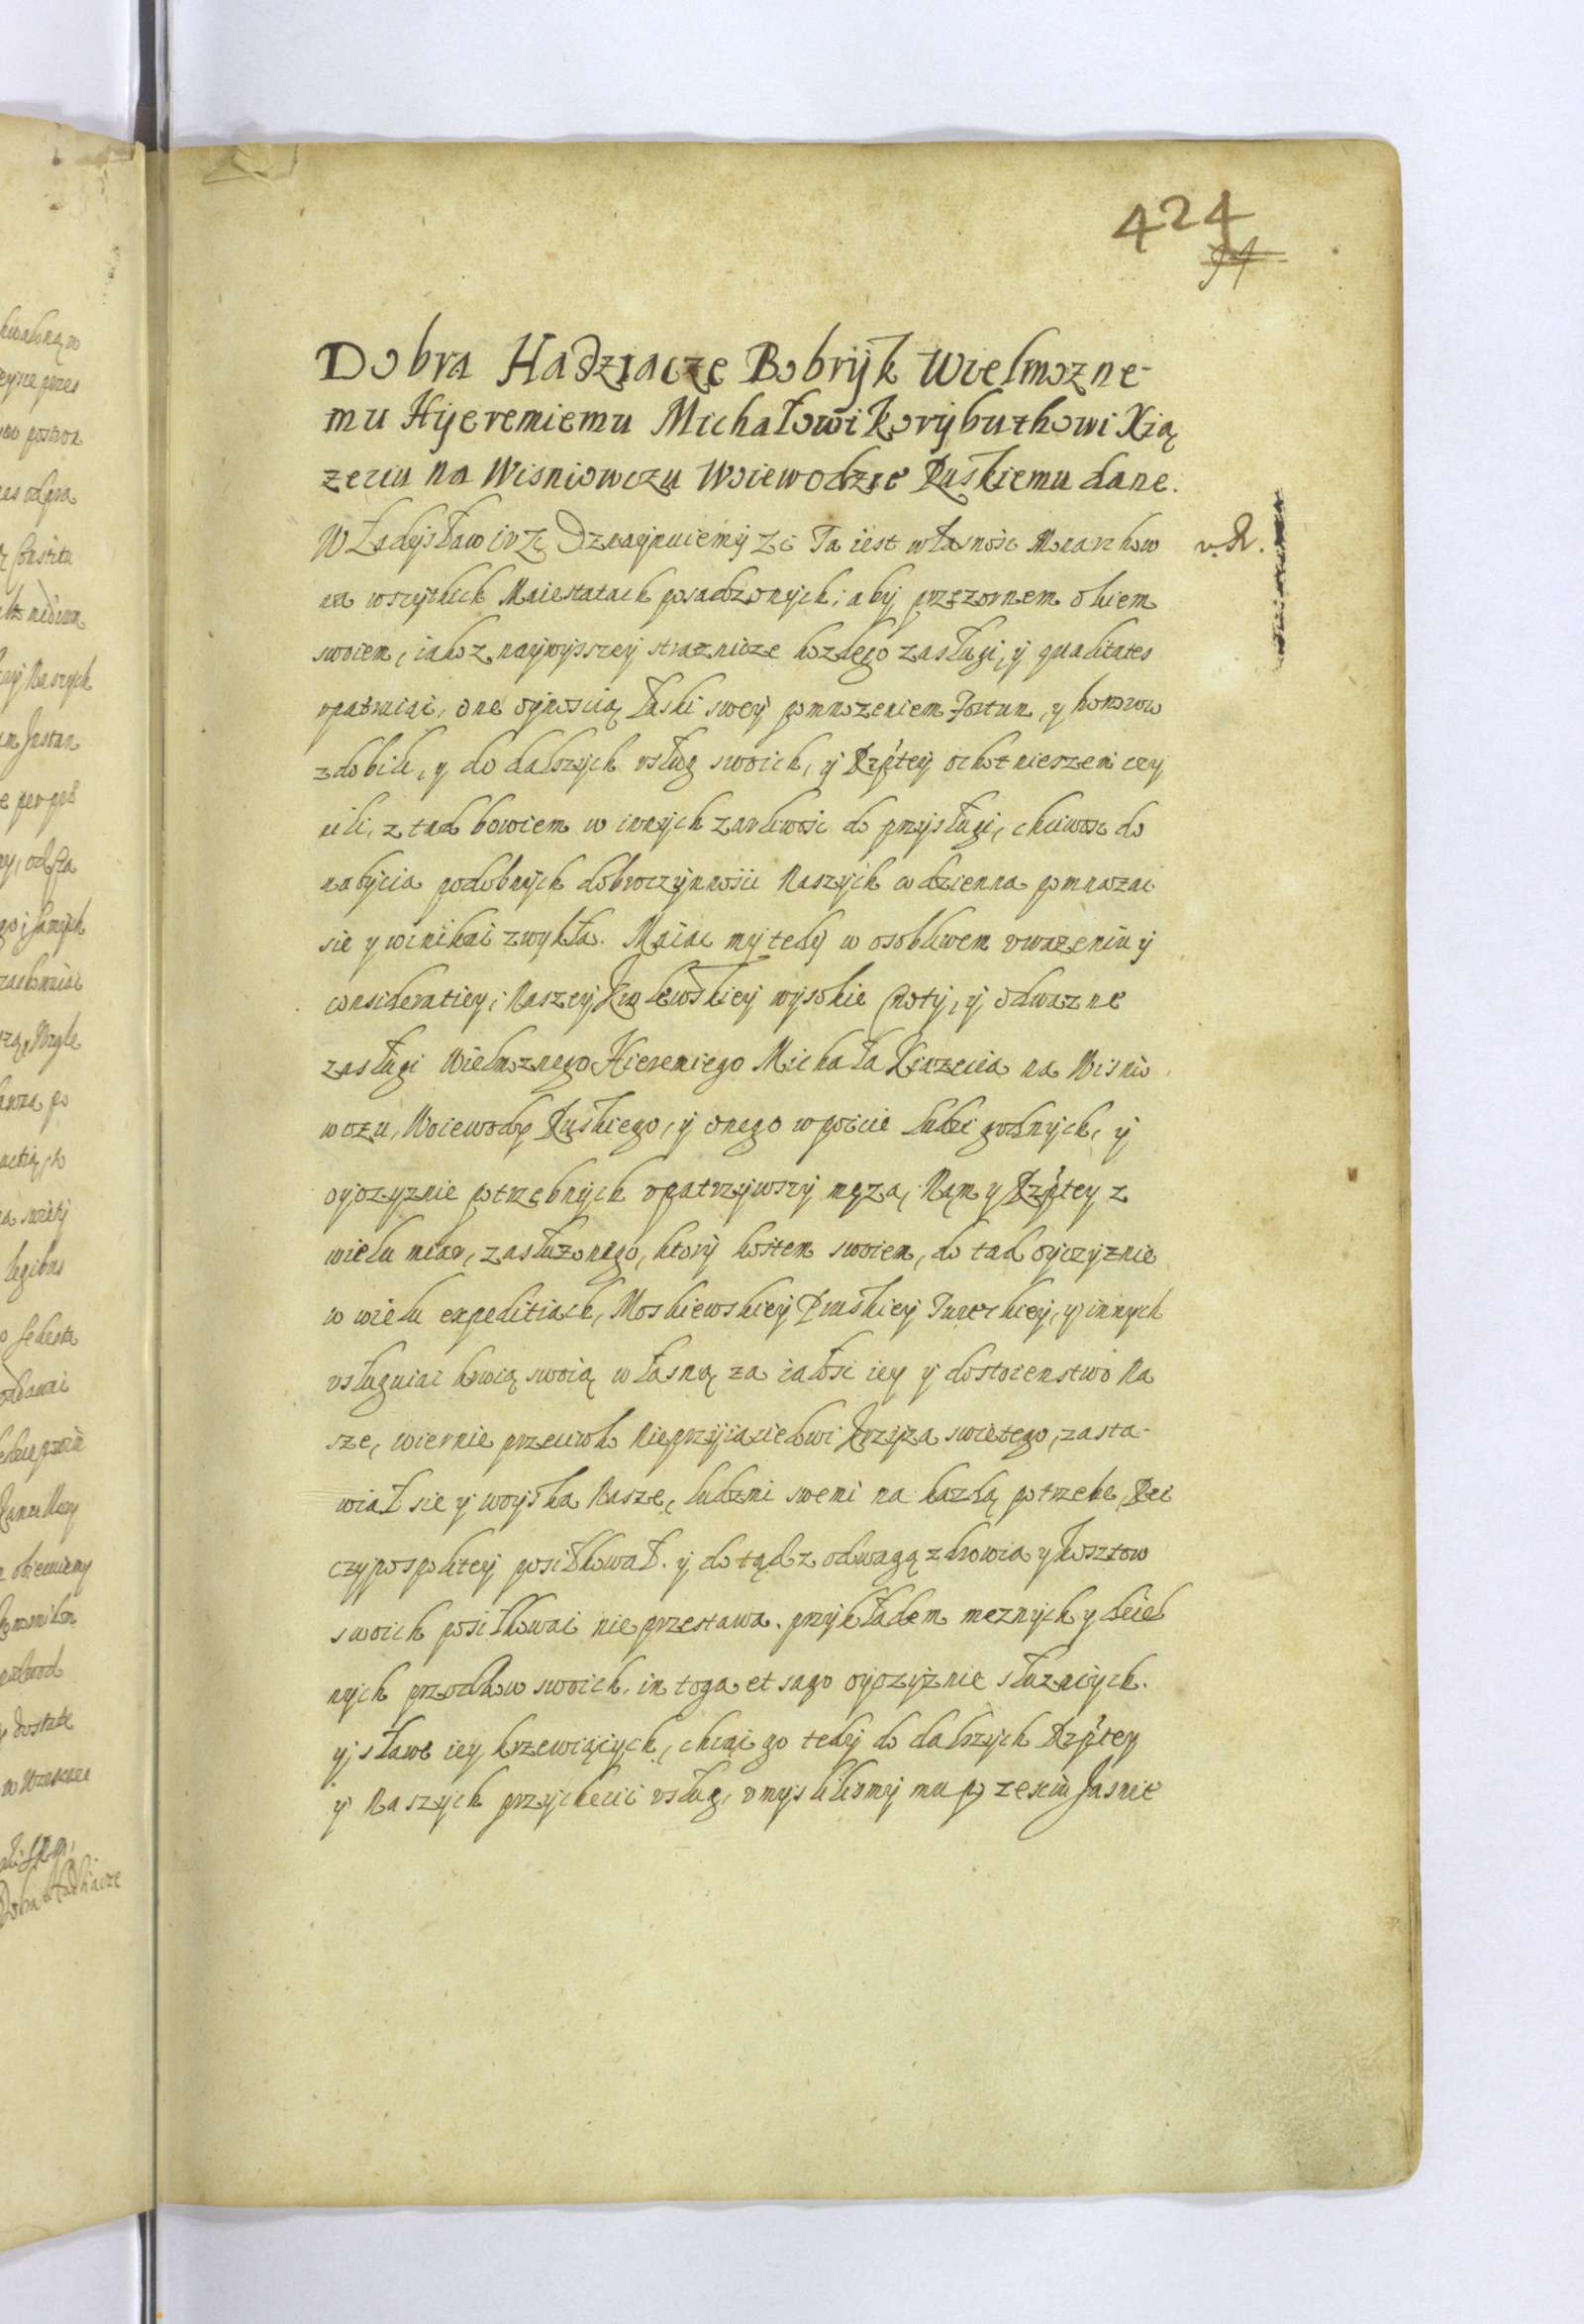 424
Dobra Hadziacze Bobryk Wielmozne-
mu Hyeremiemu Michałowi Korybuthowi Xią
zeciu na Wisniowczu Woiewodzie Ruskiemu dane.
Władysław etc Oznaymuiemy Ze Ta iest własnosc Monarchow
v. R.
na wszytkich Maiestatach posadzonych; aby przezornem okiem
swoiem, iako z naywysszey straznicze kozdego zasługi, y qualitates
vpatruiąc, one oynoscią łaski swey pomnozeniem Fortun, y honorow
zdobili, y do dalszych vsług swoich, y Rzptey ochotnieszemi czy
nili, z tad bowiem w inych zarliwosc do przysługi, chciwosc do
nabycia podobnych dobroczynnosci Naszych codzienna pomnazac
sie y winikac zwykła. Maiąc my tedy w osobliwem vwazeniu y
consideratiey; Naszey Krolewskiey wysokie Cnoty, y odwazne
zasługi Wielmoznego Hieremiego Michała Xiazecia na Wisnio
wczu, Woiewody Ruskiego, y onego w poccie ludzi godnych, y
oyczyznie potrzebnych vpatrzywszy męza, Nam y Rzptey z
wielu miar, zasłuzonego, ktory kosztem swoiem, do tad oyczyznie
w wielu expeditiach, Moskiewskiey Pruskiey Tureckiey, y innych
vsługuiac krwią swoią własną za całosc iey y dostoienstwo Na
sze, wiernie przeciwko Nieprzyiacielowi Krzyza swietego, zasta-
wiał sie y woyska Nasze, ludzmi swemi na kazdą potrzebe Rze
czypospolitey posiłkował. y do tąd z odwagą zdrowia y kosztow
swoich posiłkowac nie przestawa. przykładem meznych y dziel
nych przodkow swoich, in toga et sago oyczyznie słuzących.
y sławe iey krzewiących, chcąc go tedy do dalszych Rzptey
y Naszych przychecic vsług, vmyslilismy mu po zesciu Jasnie